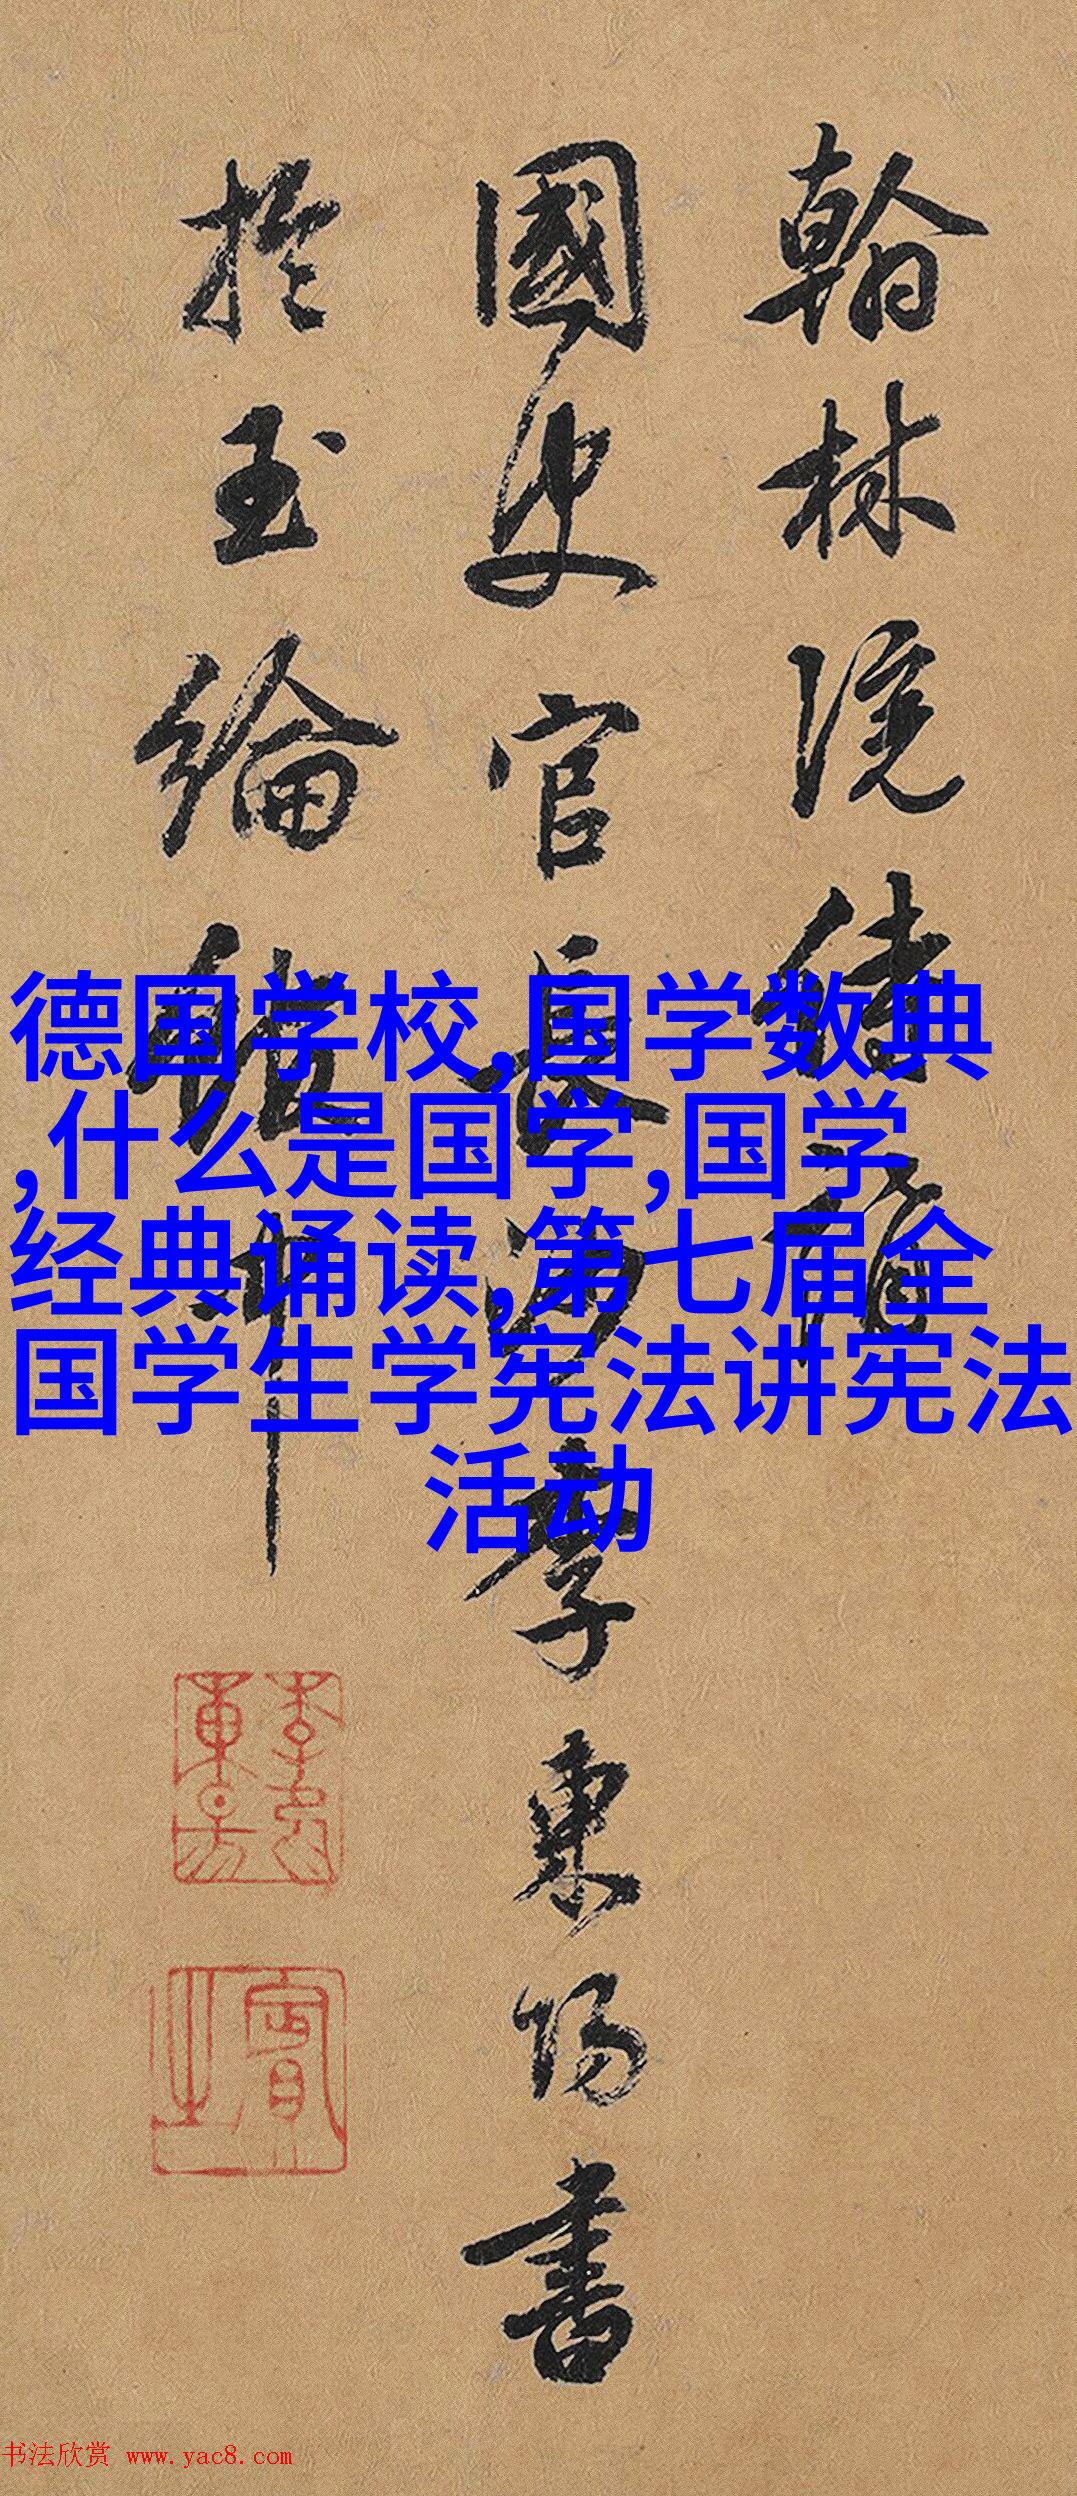 翰林院
國史官長沙李東陽書
於玉綸館中
德国学校,国学数典
,什么是国学,国学
经典诵读,第七届全
国学生学宪法讲宪法
活动
賓之
书法欣赏 www.yac8.com